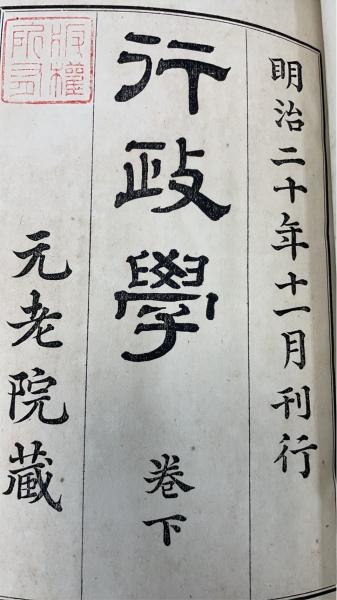 明治二十年十一月刊行
行政學
卷下
元老院藏
版權所有